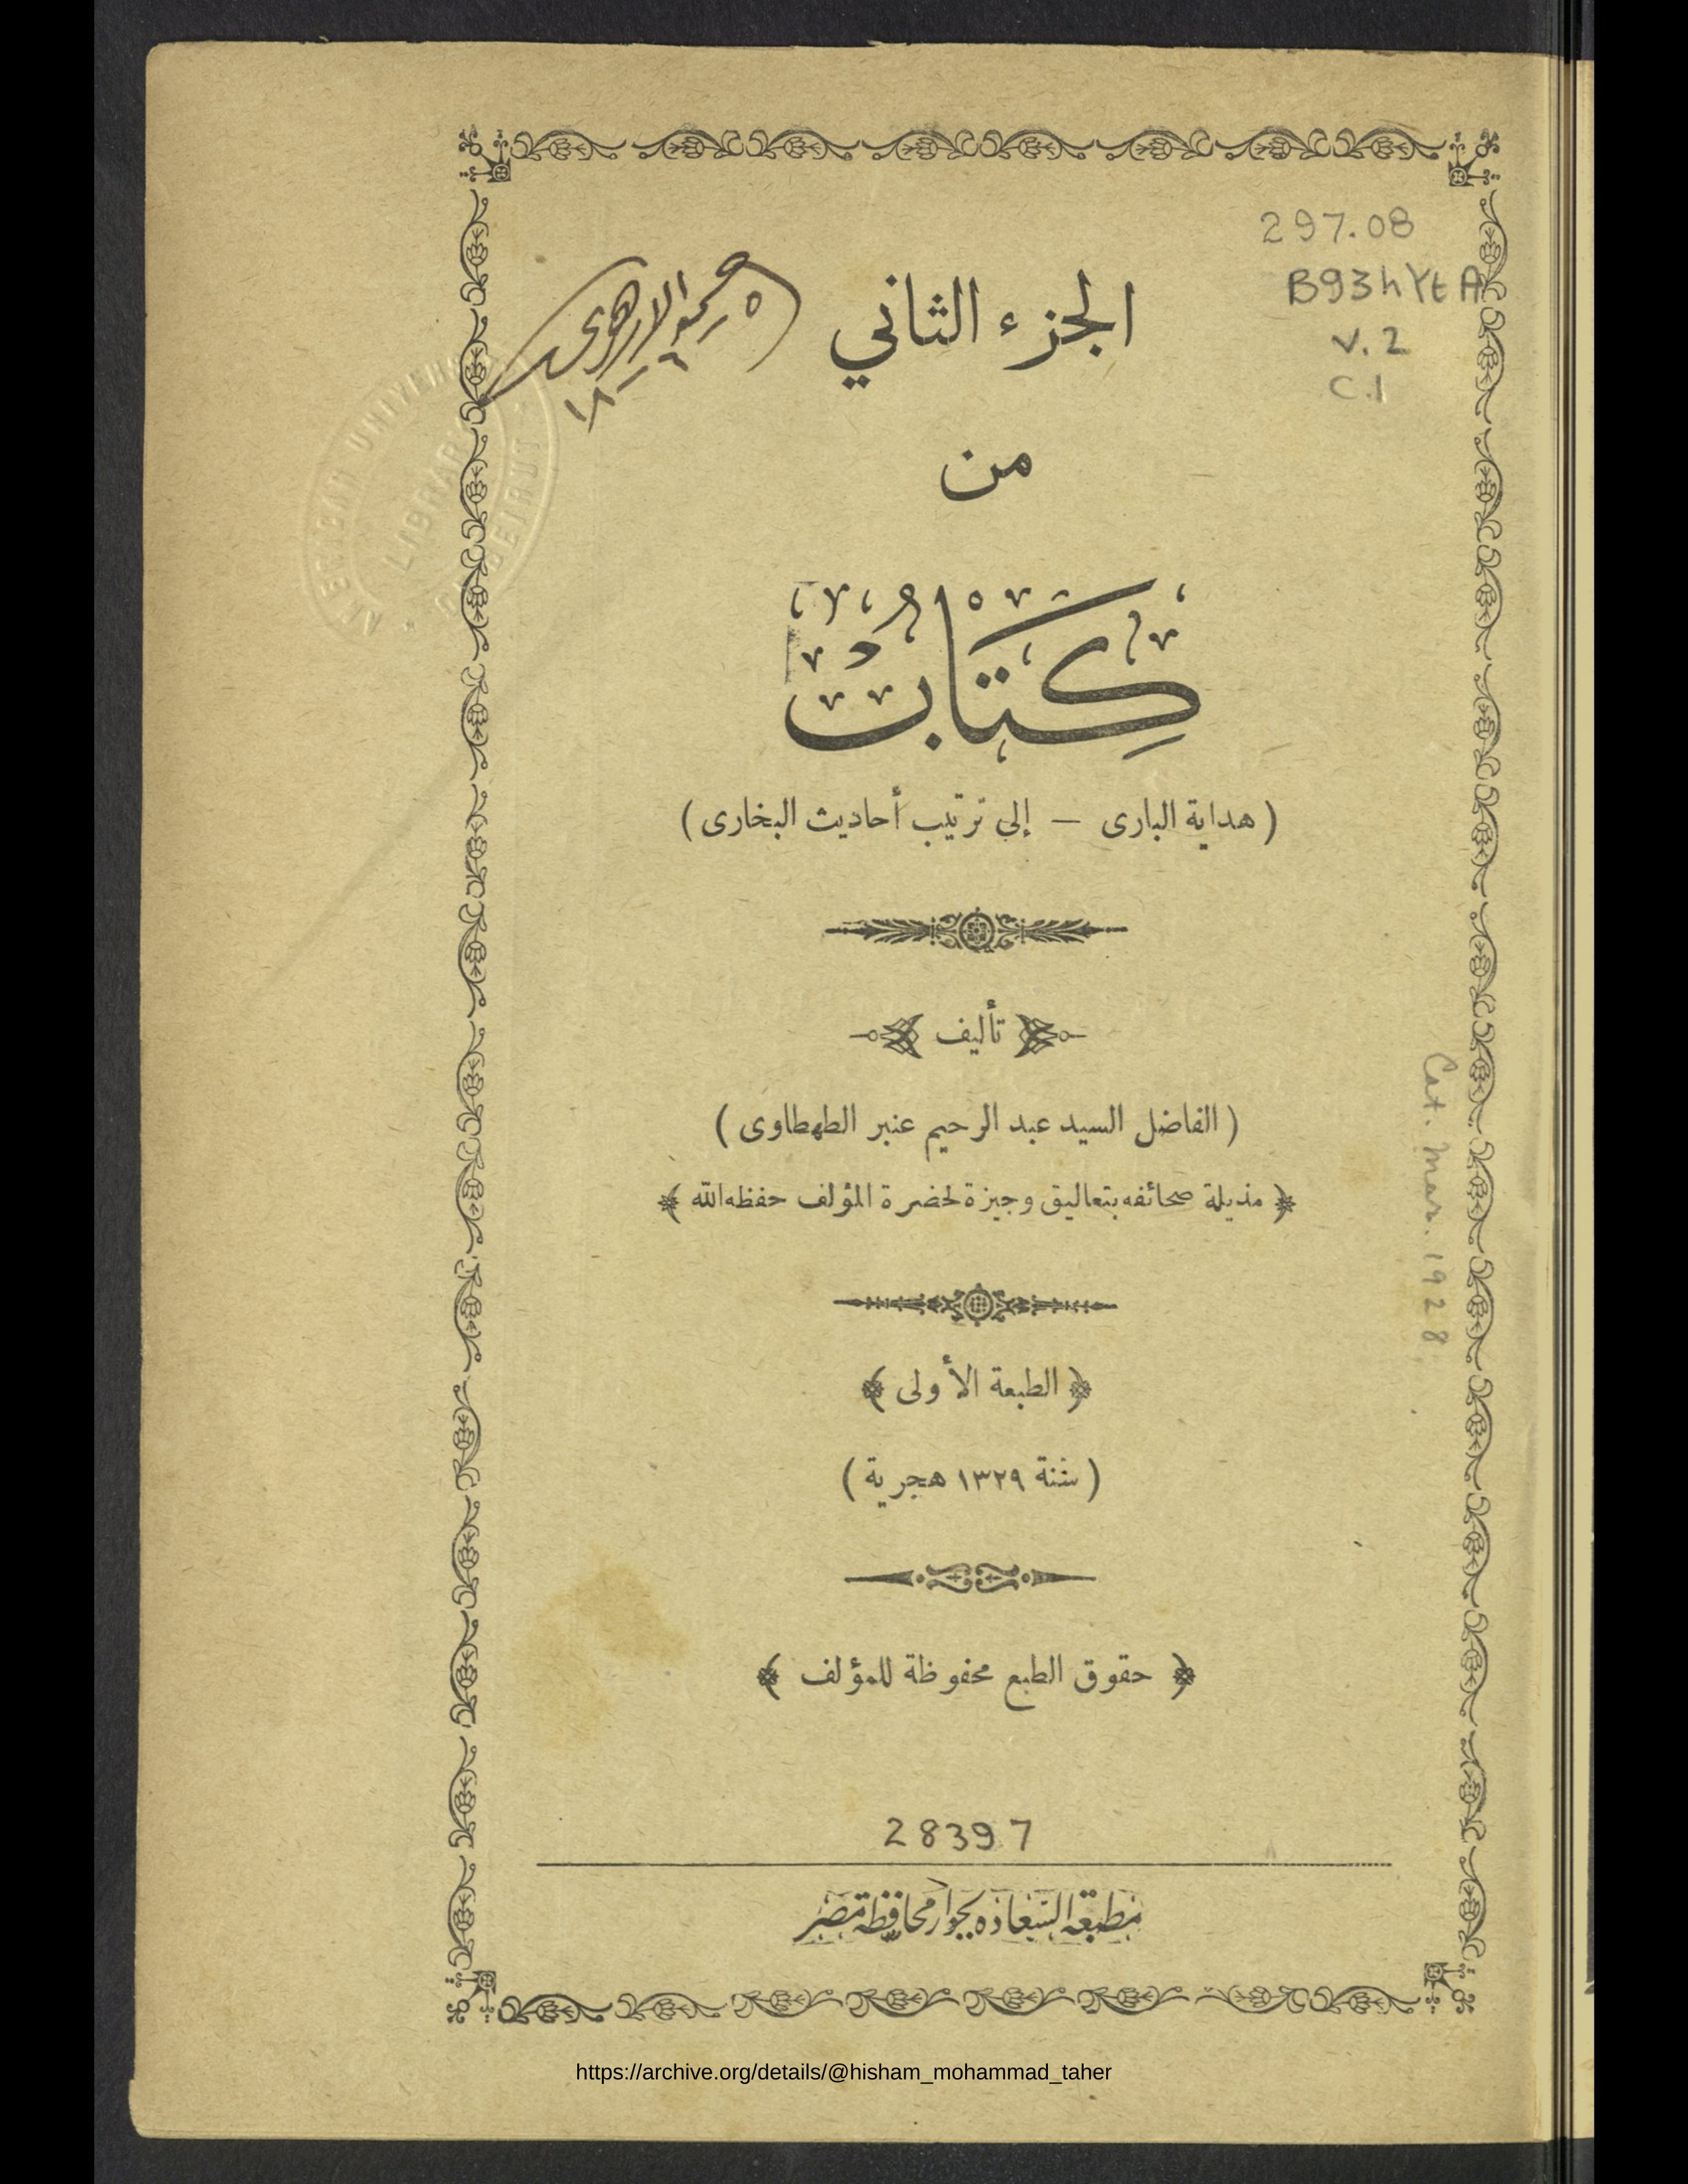 297.08
B93hYtA
v. 2
C.1
الجزء الثاني
من
كِتَابُ
(هداية البارى — إلى ترتيب أحاديث البخارى)
تأليف
(الفاضل السيد عبد الرحيم عنبر الطهطاوى)
مذيلة صحائفه بتعاليق وجيزة لحضرة المؤلف حفظه الله
الطبعة الأولى
(سنة ١٣٢٩ هجرية)
حقوق الطبع محفوظة للمؤلف
Cat. Mar. 1928
28397
مطبعة السعادة بجوار محافظة مصر
LIBRARY
BEIRUT
https://archive.org/details/@hisham_mohammad_taher